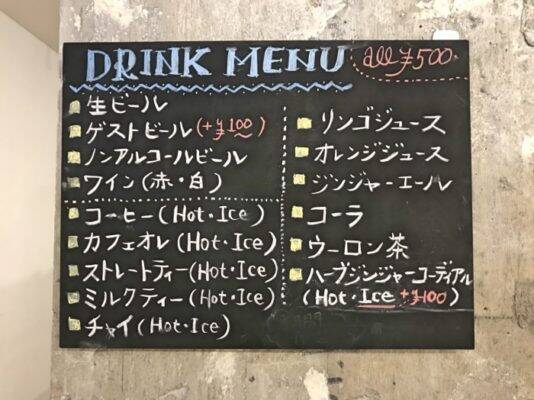 DRINK MENU all ¥500
生ビール
ゲストビール(+¥100)
ノンアルコールビール
ワイン(赤・白)
コーヒー(Hot・Ice)
カフェオレ(Hot・Ice)
ストレートティー(Hot・Ice)
ミルクティー(Hot・Ice)
チャイ(Hot・Ice)
リンゴジュース
オレンジジュース
ジンジャーエール
コーラ
ウーロン茶
ハーブジンジャーコーディアル
(Hot・Ice+¥100)